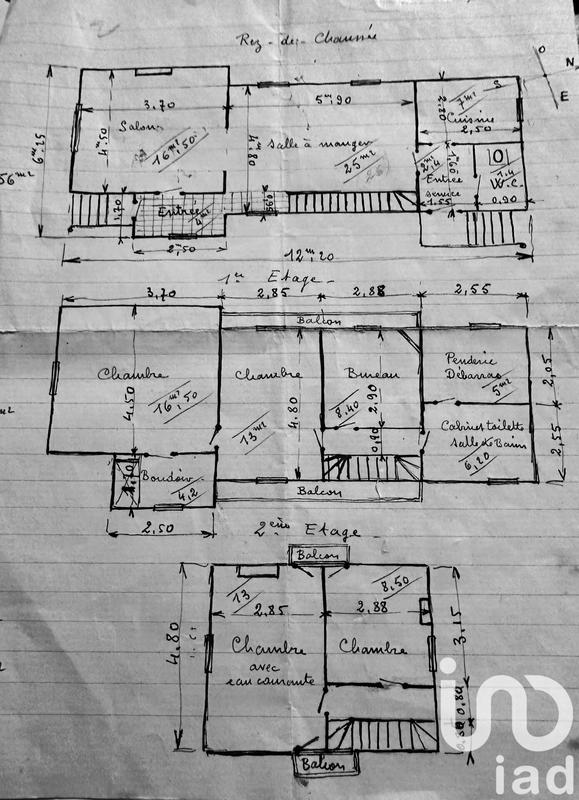 Rez-de-Chaussée
O
N
E
3,70
5m,90
7m²
2,80
Cuisine
2,50
6m25
4m50
Salon
16m²,50
4,80
Salle à manger
25m²
56m²
2m²4
1m60
Entrée
service
1.55
1.4
W.C.
0,90
1,70
Entrée
4m²
0,95
2m50
12m,20
1er Etage
3,70
2,85
2,88
2,55
Balcon
Chambre
4,50
16m²,50
Chambre
4.80
13m²
Bureau
8,40
2,90
0,90
Penderie
Débarras
5m²
2,05
Cabinet toilette
Salle de Bain
6,20
2,55
m²
Boudoir
1,70
4,2
Balcon
2,50
2ème Etage
Balcon
13
8,50
2,85
2,88
4,80
3,15
Chambre
avec
eau courante
Chambre
0,80
Balcon
iad